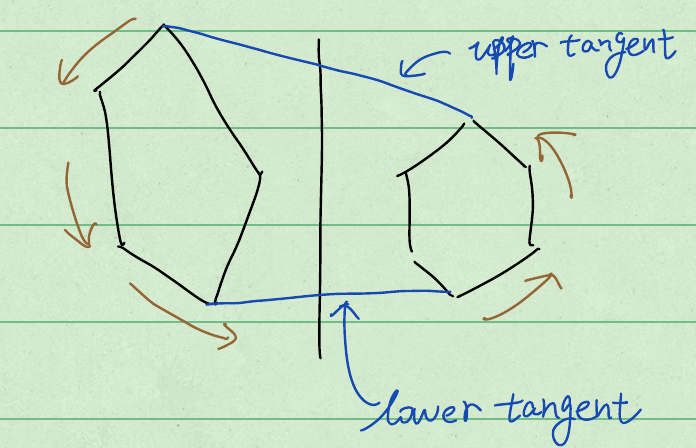 upper tangent
lower tangent